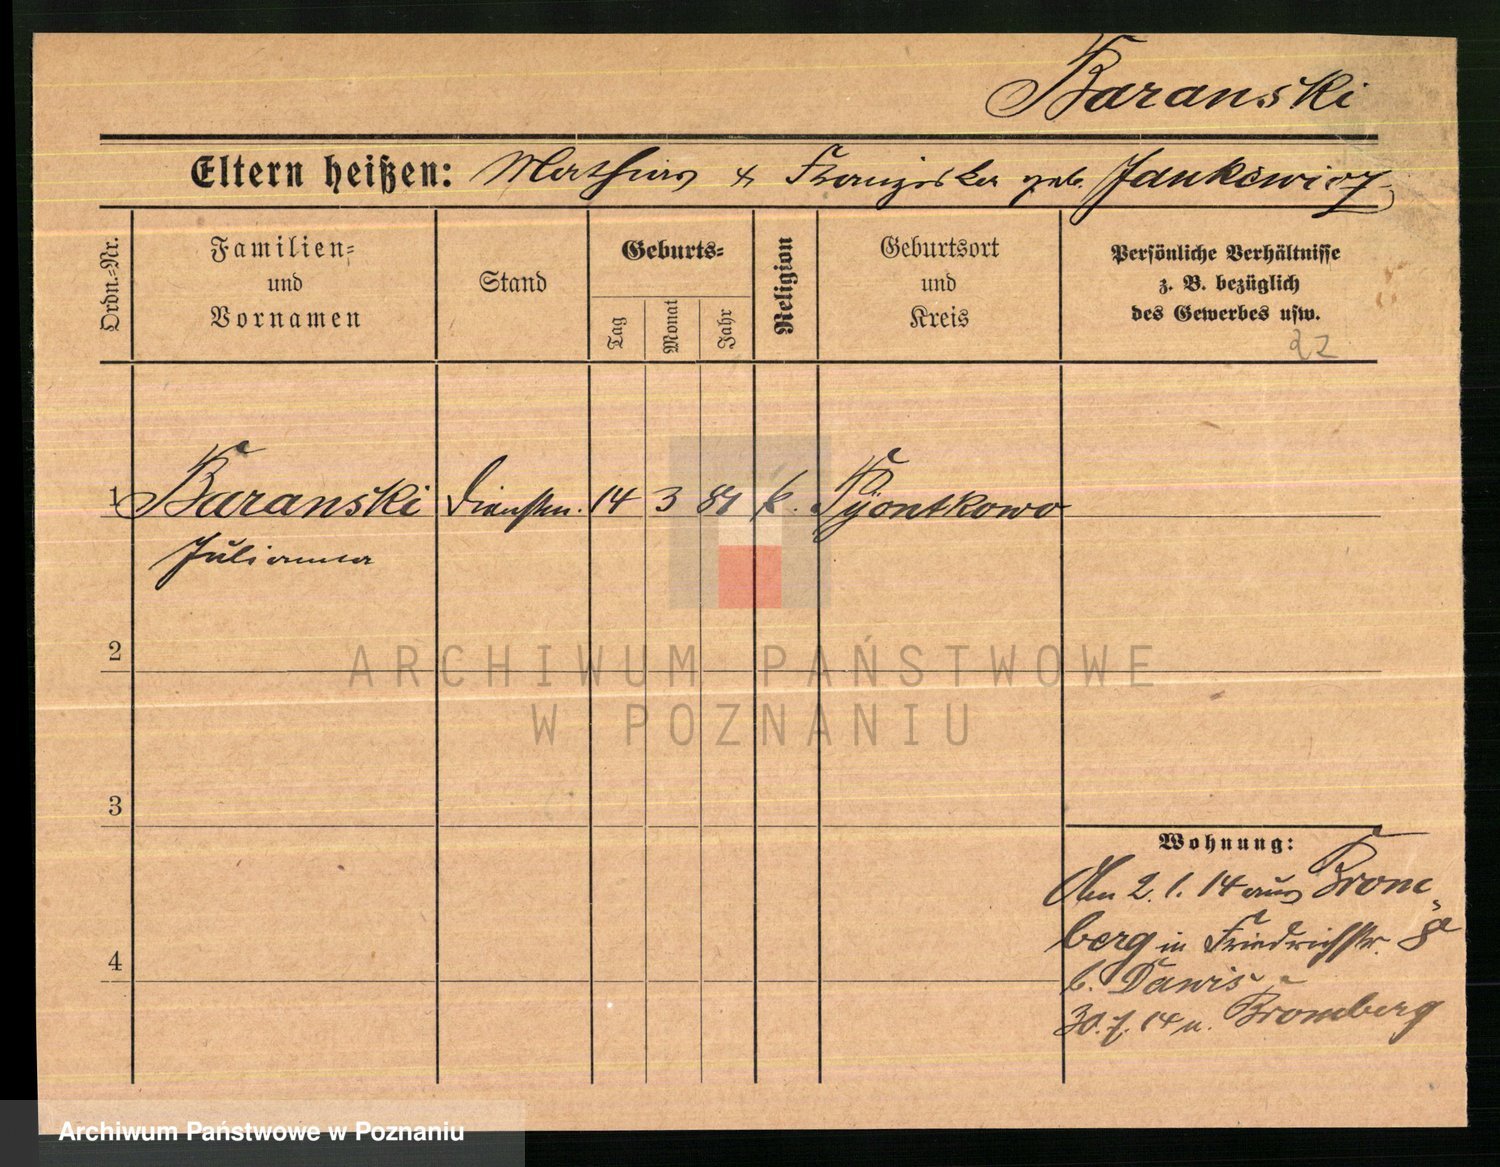 Baranski
Eltern heißen: Mathias & Franziska geb. Jankewicz
Ordn.=Nr.
Familien=
und
Vornamen
Stand
Geburts=
Tag
Monat
Jahr
Religion
Geburtsort
und
Kreis
Persönliche Verhältnisse
z. B. bezüglich
des Gewerbes usw.
1 Baranski Dienstm. 14 3 k. Pyontkowo
Julianna
2
3
4
Wohnung:
Am 2. 1. 14 aus Brom
berg in Friedrichstr.
b. Dawis
30. 7. 14 n. Bromberg
ARCHIWUM PAŃSTWOWE
W POZNANIU
Archiwum Państwowe w Poznaniu